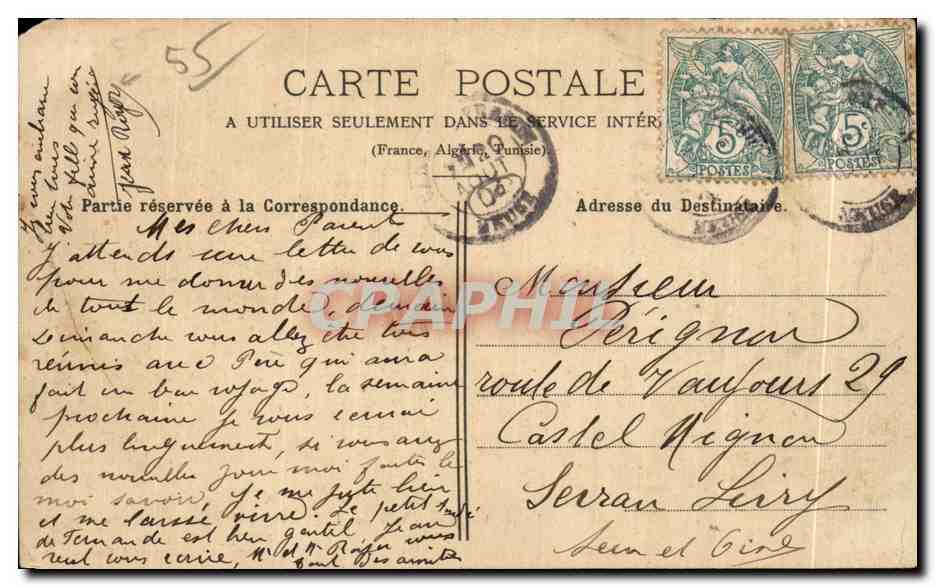 55
CARTE POSTALE
A UTILISER SEULEMENT DANS LE SERVICE INTÉR
(France, Algérie, Tunisie).
5c
POSTES
5c
POSTES
AOUT
MEUSE
MEUSE
MEUSE
Partie réservée à la Correspondance.
Adresse du Destinataire.
Mes chers Parent
j'attends une lettre de vous
pour me donner des nouvelles
de tout le monde, demain
Dimanche vous allez être tous
réunis avec Père qui aura
fait un bon voyage, la semaine
prochaine je vous
plus longuement, si vous avez
des nouvelles pour moi faites le
moi savoir. Je me porte bien
et me laisse vivre. Le petit
de Fernande est bien gentil, Jean
veut vous écrire, Mr et Me Roger vous
font Des amitiés
Je vous embrasse
bien tous
Votre fille qui
aime
Jean Roger
Monsieur
Pérignon
route de Vaujours 29
Castel Mignon
Sevran Livry
Seine et Oise
CPAPHIL